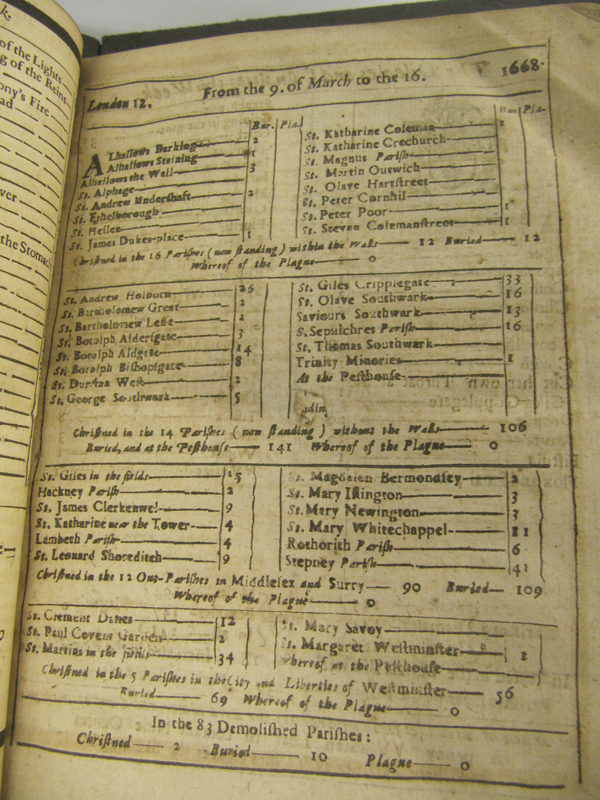 of the Lights
g of the Reins
ony's Fire
ead
ver
the Stomach
London 12. From the 9. of March to the 16. 1668.
Bur. Pla.
Alhallows Barking 2
Alhallows Staining 1
Alhallows the Wall 3
St. Alphage
St. Andrew Undershaft 2
St. Ethelborough
St. Hellen
St. James Dukes-place 1
Bur. Pla.
St. Katharine Coleman 1
St. Katharine Creechurch
St. Magnus Parish
St. Martin Outwich
St. Olave Hartstreet
St. Peter Cornhil
St. Peter Poor 1
St. Steven Colemanstreet 1
Christned in the 16 Parishes (now standing) within the Walls 12 Buried 12
Whereof of the Plague 0
St. Andrew Holborn 26
St. Bartholomew Great 2
St. Bartholomew Lesse 2
St. Botolph Aldersgate 3
St. Botolph Aldgate 14
St. Botolph Bishopsgate 8
St. Dunstan West 2
St. George Southwark 5
St. Giles Cripplegate 33
St. Olave Southwark 16
Saviours Southwark 13
S. Sepulchres Parish 16
St. Thomas Southwark
Trinity Minories 1
At the Pesthouse
Christned in the 14 Parishes (now standing) without the Walls 106
Buried, and at the Pesthouse 141 Whereof of the Plague 0
St. Giles in the fields 15
Hackney Parish 2
St. James Clerkenwel 9
St. Katharine near the Tower 4
Lambeth Parish 4
St. Leonard Shoreditch 9
St. Magdalen Bermondsey 2
St. Mary Islington 3
St. Mary Newington 3
St. Mary Whitechappel 11
Rothorith Parish 6
Stepney Parish 41
Christned in the 12 Out-Parishes in Middlesex and Surry 90 Buried 109
Whereof of the Plague 0
St. Clement Danes 12
St. Paul Covent Garden 2
St. Martins in the fields 34
St. Mary Savoy
St. Margaret Westminster 1
Whereof at the Pesthouse
Christned in the 5 Parishes in the City and Liberties of Westminster 56
Buried 69 Whereof of the Plague 0
In the 83 Demolished Parishes:
Christned 2 Buried 10 Plague 0